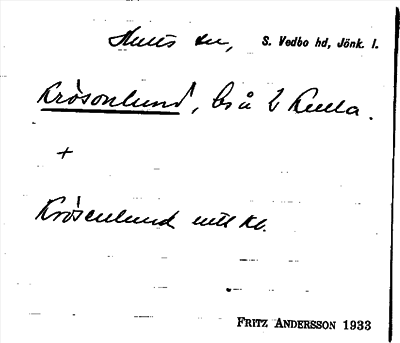 Hults sn, S. Vedbo hd, Jönk. l.
Krösonlund, bs å 2 Kulla.
+
Krösenlund enl kb.
FRITZ ANDERSSON 1933